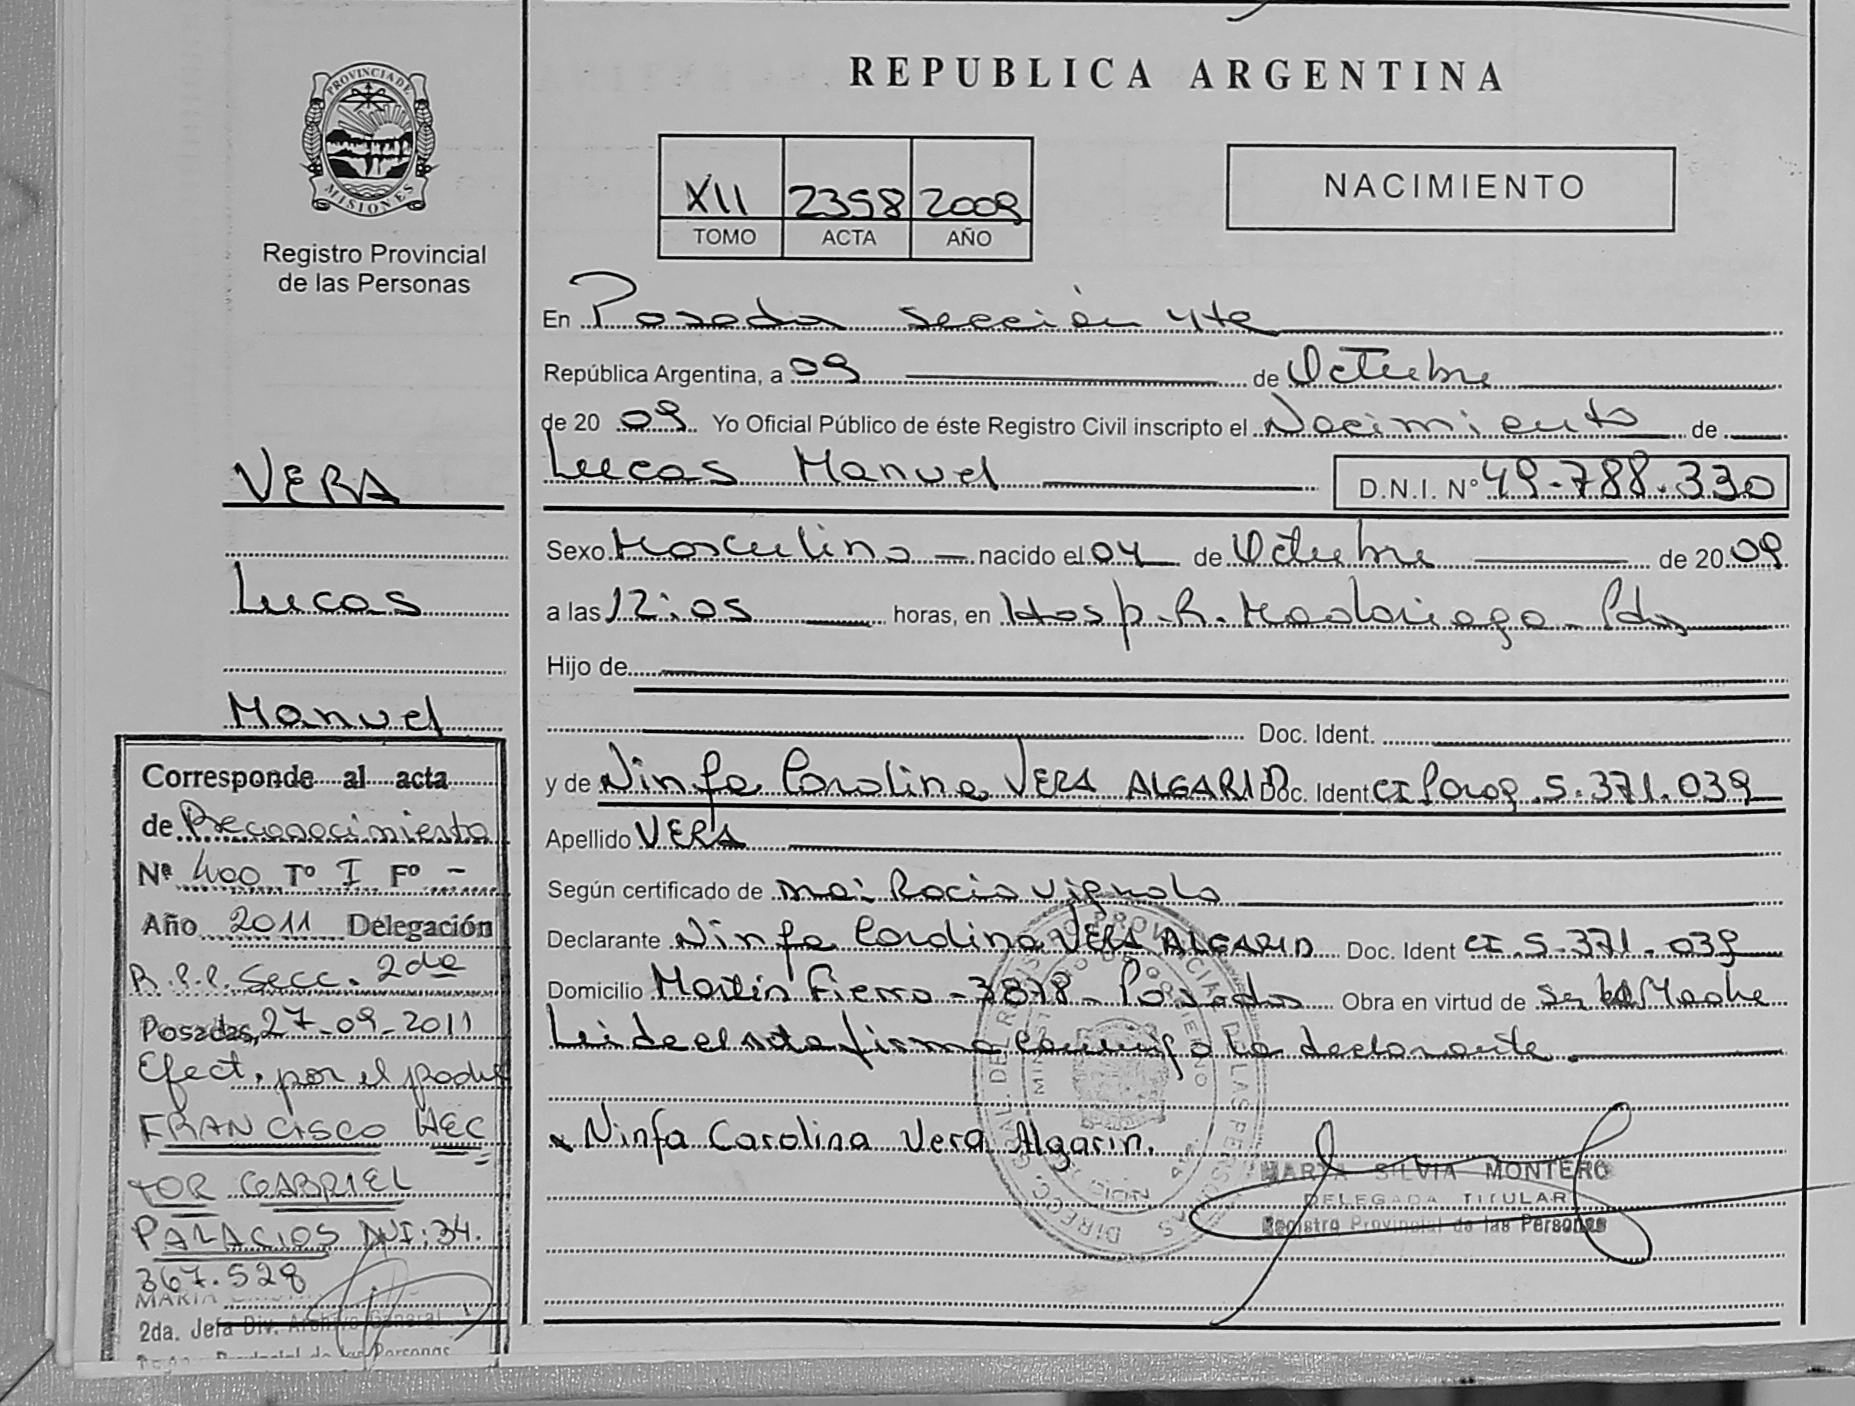 REPUBLICA ARGENTINA
PROVINCIA DE
MISIONES
Registro Provincial
de las Personas
XII 2358 2009
TOMO ACTA AÑO
NACIMIENTO
En Posadas sección 4ta
República Argentina, a 09 de Octubre
de 20 09 Yo Oficial Público de éste Registro Civil inscripto el Nacimiento de
Lucas Manuel D.N.I. Nº 49.788.330
Sexo Masculino nacido el 04 de Octubre de 20 09
a las 12:05 horas, en Hosp. R. Madariaga - Pdas
Hijo de
Doc. Ident.
y de Ninfa Carolina VERA ALGARIN Doc. Ident CI Parag. 5.371.039
Apellido VERA
Según certificado de Rocio Vignolo
Declarante Ninfa Carolina VERA ALGARIN Doc. Ident CI. 5.371.039
Domicilio Martin Fierro - 3878 - Posadas Obra en virtud de ser la Madre
Leida el acta firma conmigo la declarante.
Ninfa Carolina Vera Algarin.
MARTA SILVIA MONTERO
DELEGADA TITULAR
Registro Provincial de las Personas
VERA
Lucas
Manuel
Corresponde al acta
de Reconocimiento
Nº 400 Tº I Fº -
Año 2011 Delegación
R.P.P. Secc. 2da
Posadas, 27-09-2011
Efect. por el padre
FRANCISCO HEC
TOR GABRIEL
PALACIOS DNI: 34.
367.528
MARIA
2da. Jefa Div. Archivo General
Provincial de las Personas